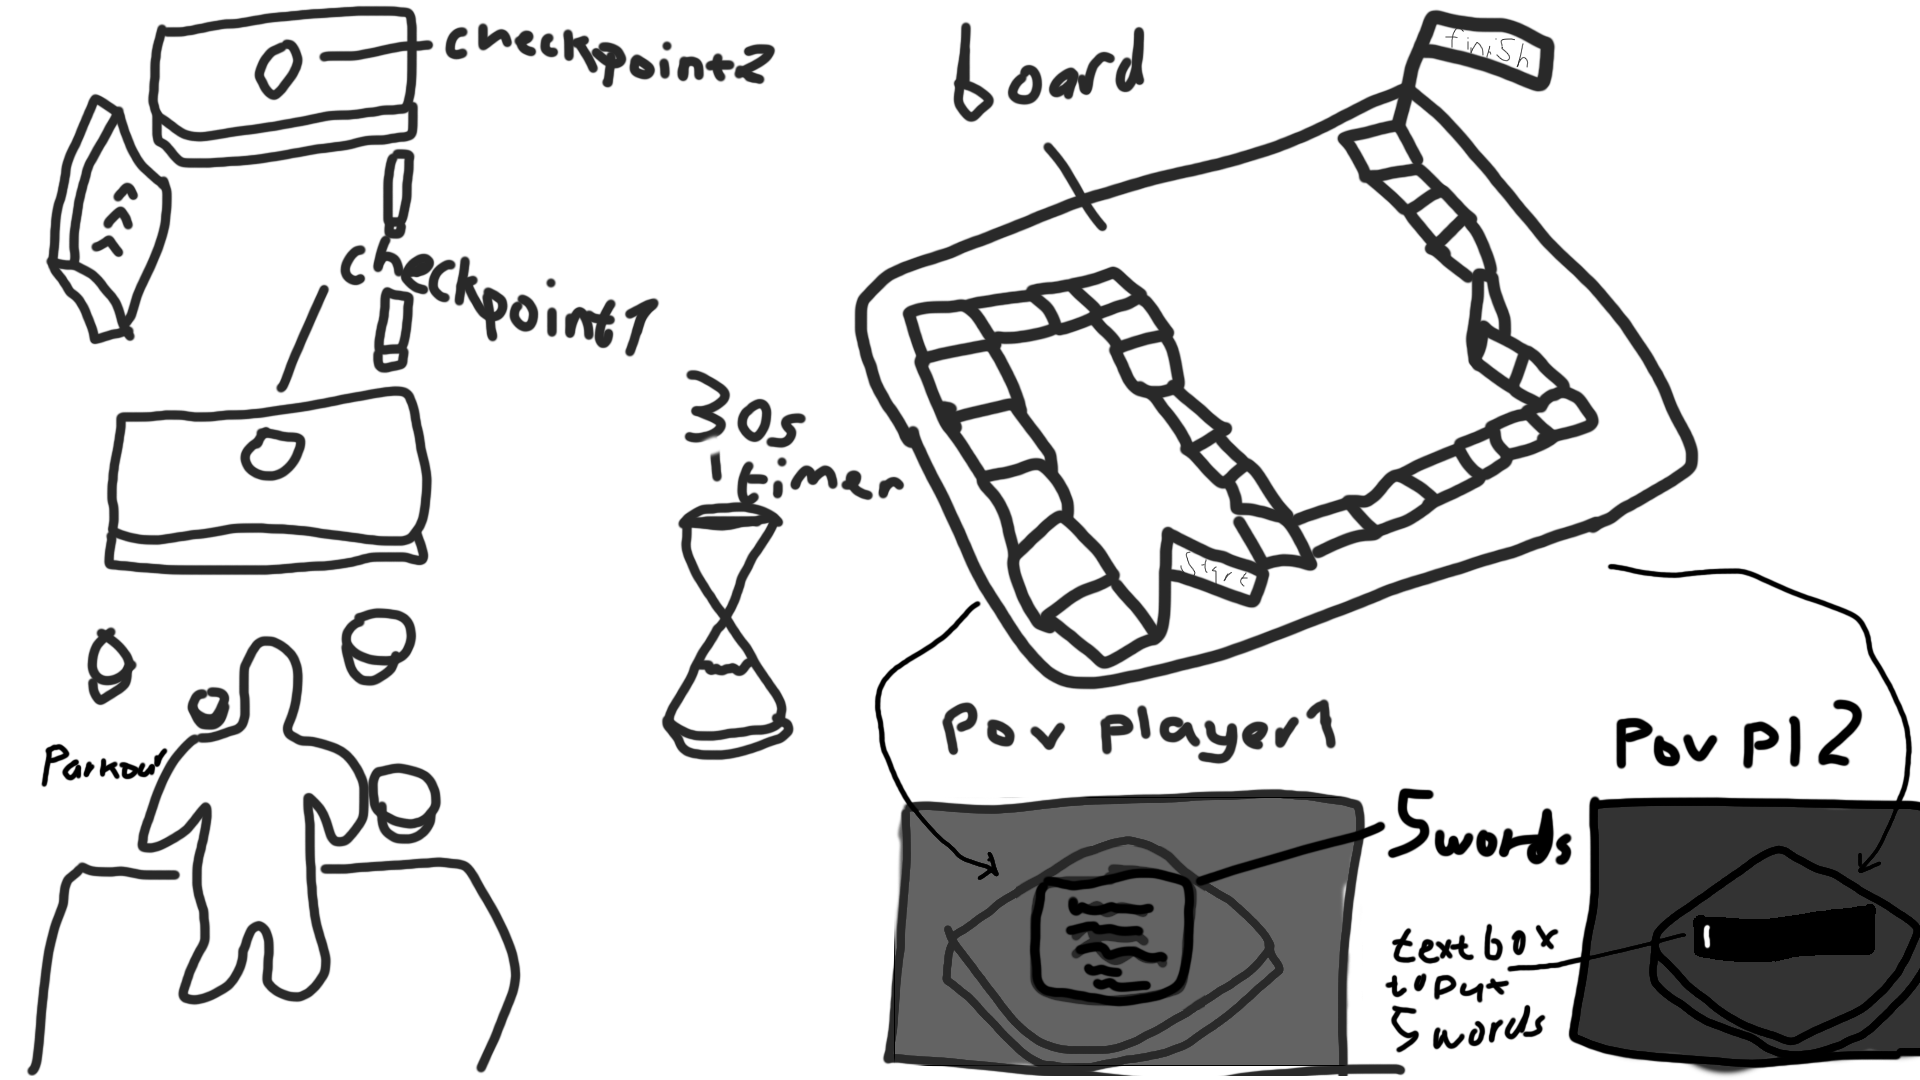 checkpoint2
checkpoint1
Parkour
30s
timer
board
finish
Start
Pov player1
5 words
Pov pl 2
textbox
to put
5 words